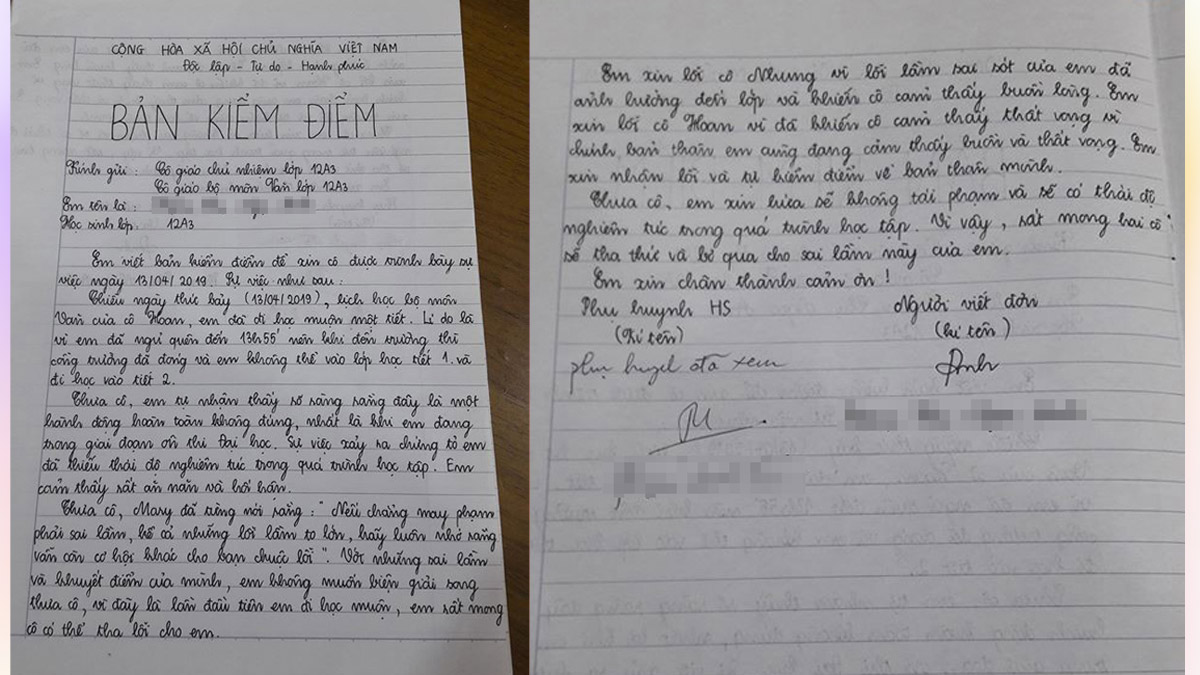 CỘNG HÒA XÃ HỘI CHỦ NGHĨA VIỆT NAM
Độc lập - Tự do - Hạnh phúc
BẢN KIỂM ĐIỂM
Kính gửi : Cô giáo chủ nhiệm lớp 12A3
Cô giáo bộ môn Văn lớp 12A3
Em tên là :
Học sinh lớp : 12A3
Em viết bản kiểm điểm để xin cô được trình bày sự
việc ngày 13/04/2019. Sự việc như sau :
Chiều ngày thứ bảy (13/04/2019), lịch học bộ môn
Văn của cô Hoan, em đã đi học muộn một tiết. Lí do là
vì em đã ngủ quên đến 13h55' nên khi đến trường thì
cổng trường đã đóng và em không thể vào lớp học tiết 1 và
đi học vào tiết 2.
Thưa cô, em tự nhận thấy rõ ràng rằng đây là một
hành động hoàn toàn không đúng, nhất là khi em đang
trong giai đoạn ôn thi Đại học. Sự việc xảy ra chứng tỏ em
đã thiếu thái độ nghiêm túc trong quá trình học tập. Em
cảm thấy rất ăn năn và hối hận.
Thưa cô, Mary đã từng nói rằng : " Nếu chẳng may phạm
phải sai lầm, kể cả những lỗi lầm to lớn, hãy luôn nhớ rằng
vẫn còn cơ hội khác cho bạn chuộc lỗi ". Với những sai lầm
và khuyết điểm của mình, em không muốn biện giải song
thưa cô, vì đây là lần đầu tiên em đi học muộn, em rất mong
cô có thể tha lỗi cho em.
Em xin lỗi cô Nhung vì lỗi lầm sai sót của em đã
ảnh hưởng đến lớp và khiến cô cảm thấy buồn lòng. Em
xin lỗi cô Hoan vì đã khiến cô cảm thấy thất vọng vì
chính bản thân em cũng đang cảm thấy buồn và thất vọng. Em
xin nhận lỗi và tự kiểm điểm về bản thân mình.
Thưa cô, em xin hứa sẽ không tái phạm và sẽ có thái độ
nghiêm túc trong quá trình học tập. Vì vậy, rất mong hai cô
sẽ tha thứ và bỏ qua cho sai lầm này của em.
Em xin chân thành cảm ơn !
Phụ huynh HS Người viết đơn
(Kí tên) (kí tên)
phụ huynh đã xem Anh